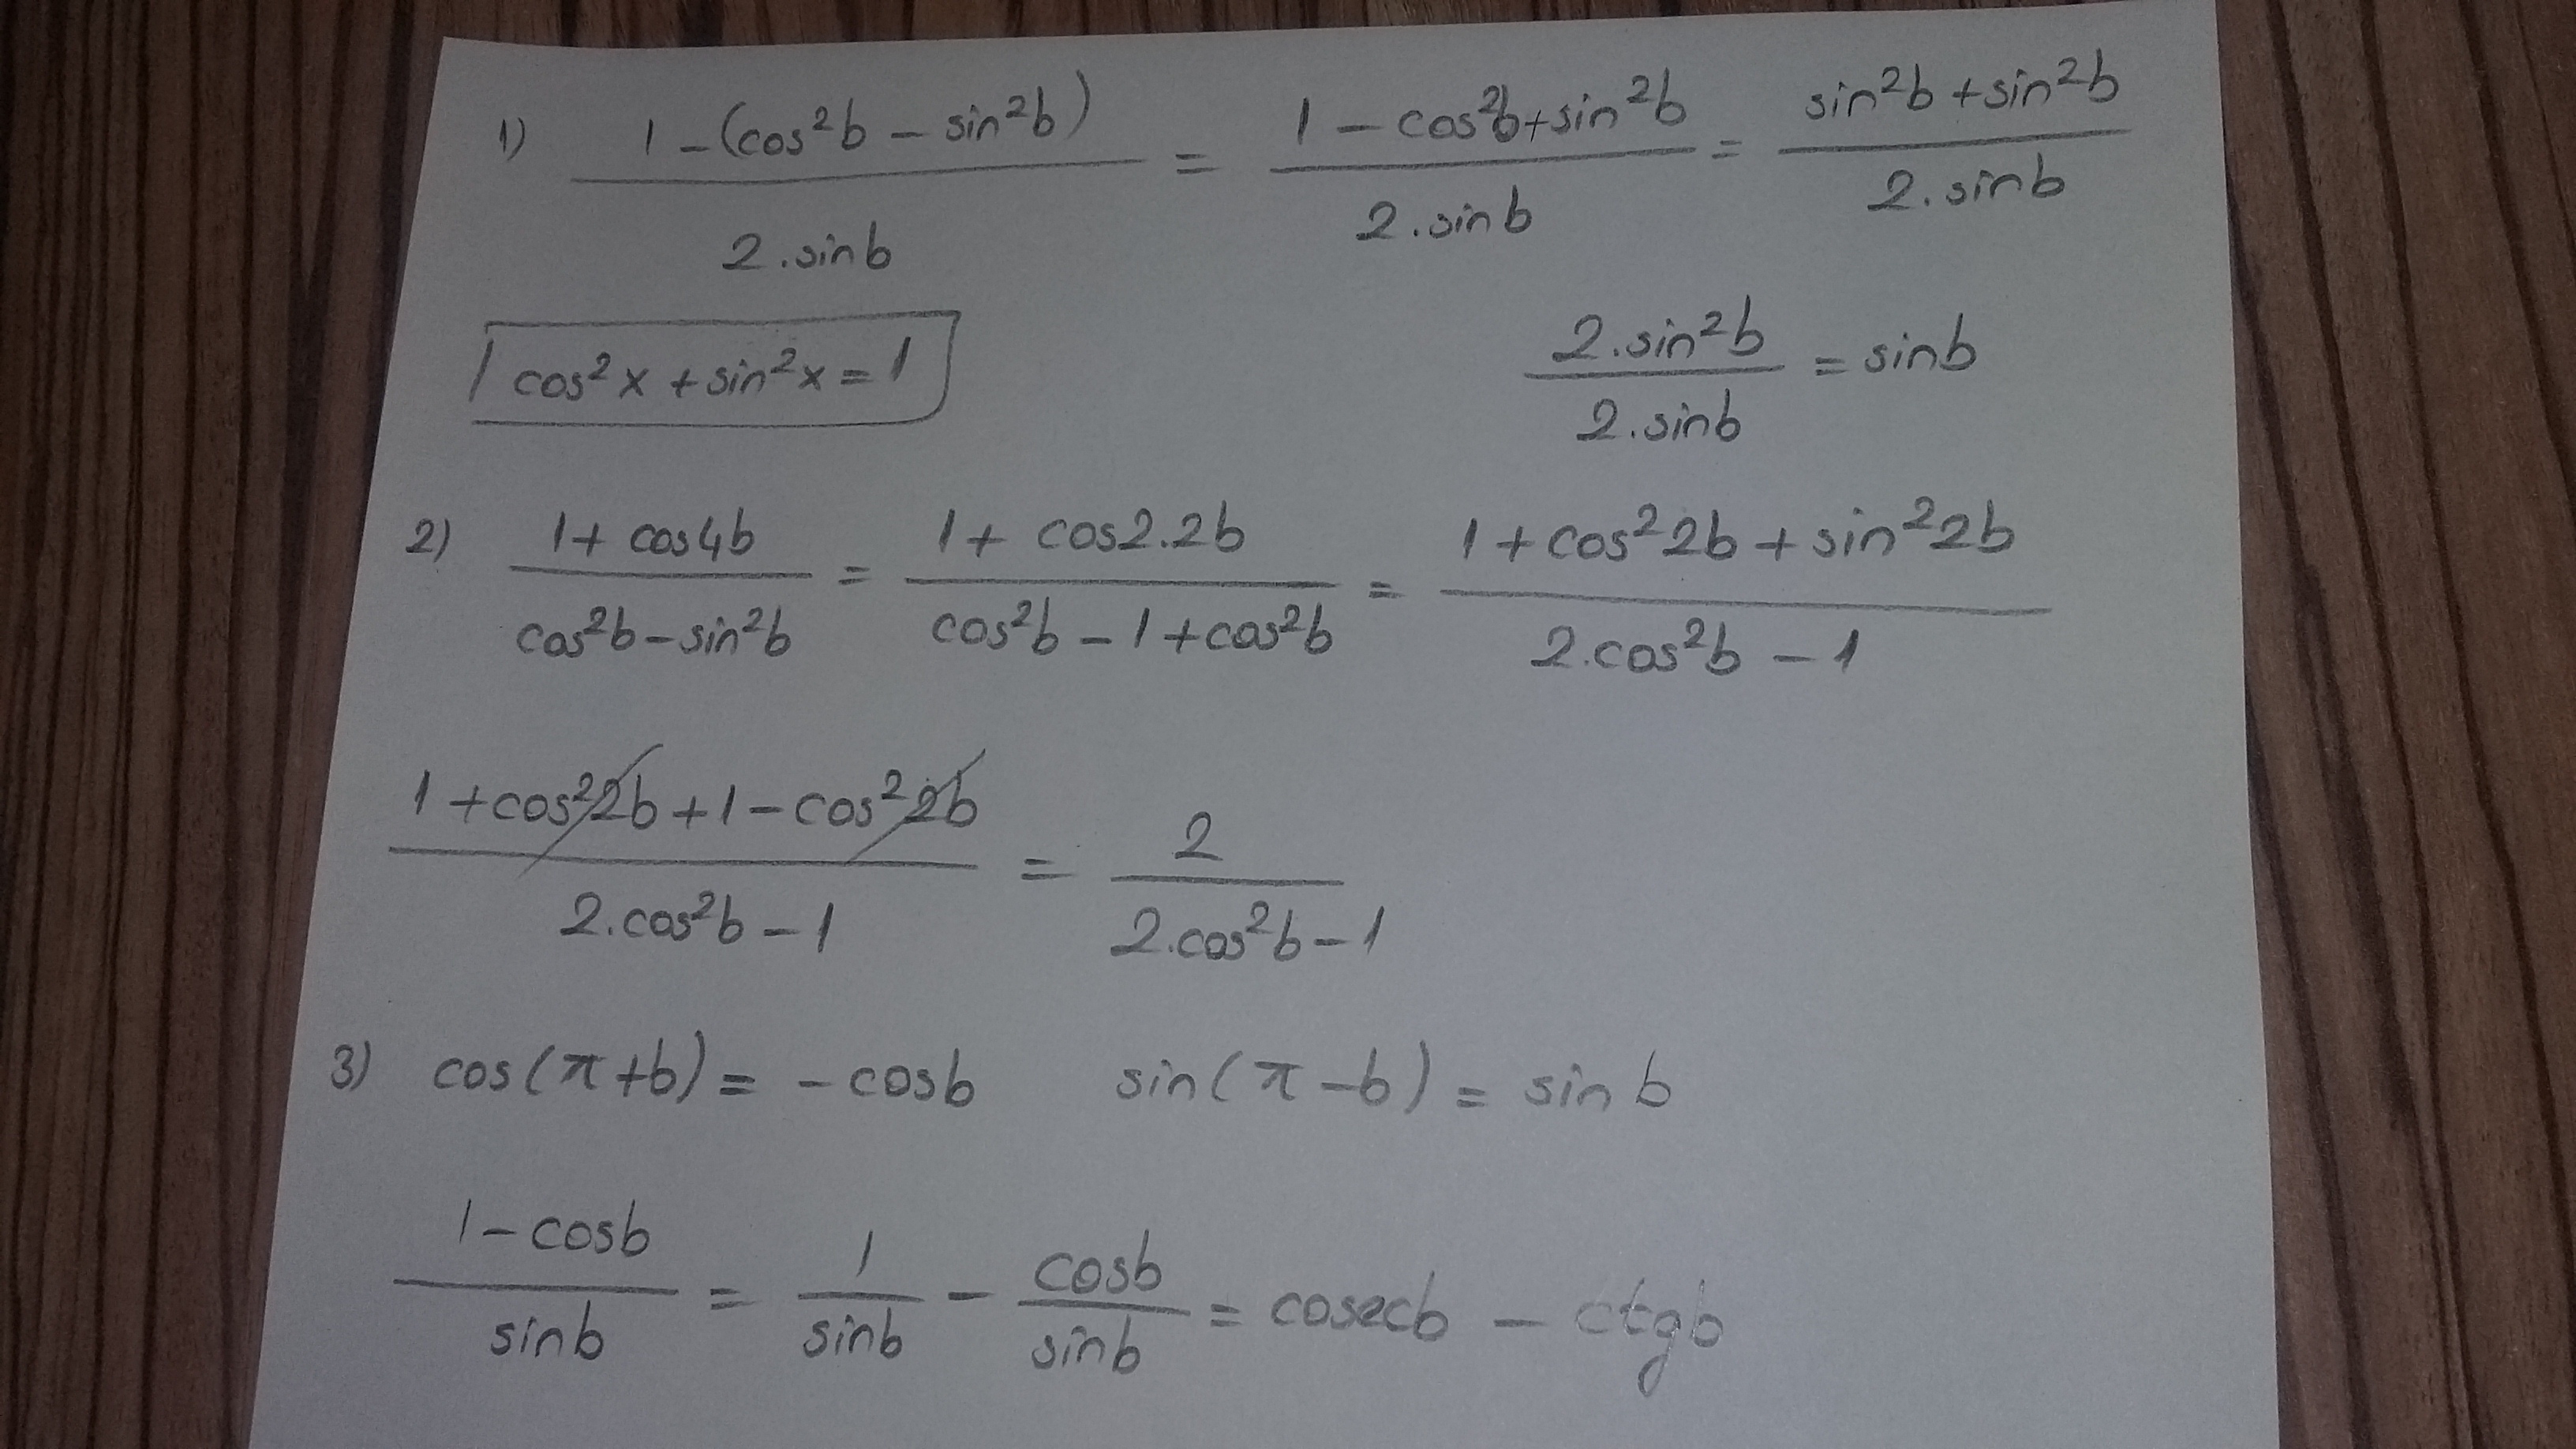 1) (1 - (cos²b - sin²b)) / (2.sinb) = (1 - cos²b + sin²b) / (2.sinb) = (sin²b + sin²b) / (2.sinb)
cos²x + sin²x = 1
(2.sin²b) / (2.sinb) = sinb
2) (1 + cos4b) / (cos²b - sin²b) = (1 + cos2.2b) / (cos²b - 1 + cos²b) = (1 + cos²2b + sin²2b) / (2.cos²b - 1)
(1 + cos²2b + 1 - cos²2b) / (2.cos²b - 1) = 2 / (2.cos²b - 1)
3) cos(π+b) = -cosb sin(π-b) = sinb
(1 - cosb) / sinb = 1 / sinb - cosb / sinb = cosecb - ctgb